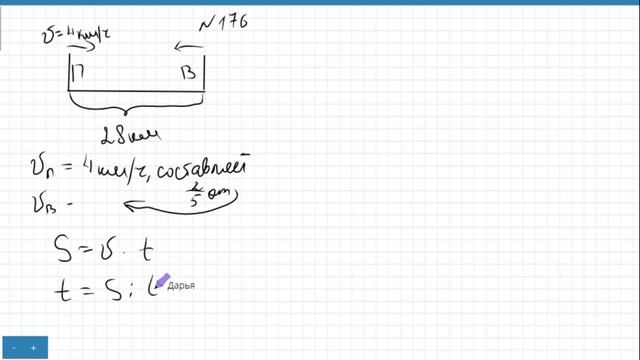 N 176
v=4км/ч
П В
28км
vп = 4 км/ч, составляет
vв - 2/5 от
S = v · t
t = S : v
Дарья
- +